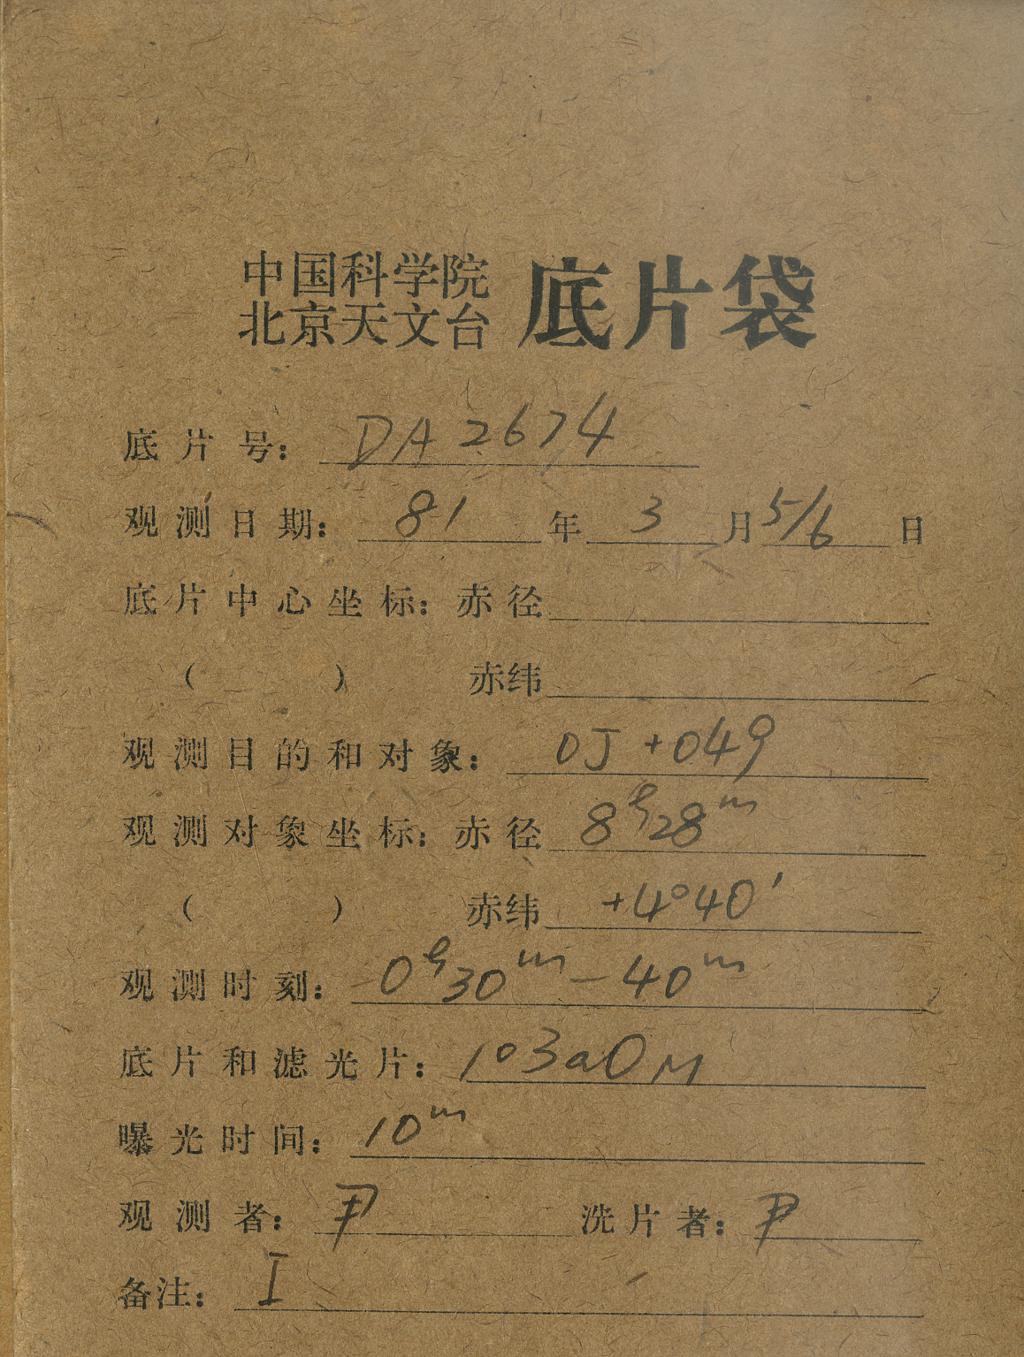 中国科学院
北京天文台 底片袋
底片号: DA2674
观测日期: 81年3月5/6日
底片中心坐标: 赤径
( ) 赤纬
观测目的和对象: OJ+049
观测对象坐标: 赤径 8h28m
( ) 赤纬 +4°40′
观测时刻: 0h30m-40m
底片和滤光片: 103aO
曝光时间: 10m
观测者: 尹 洗片者: 尹
备注: I